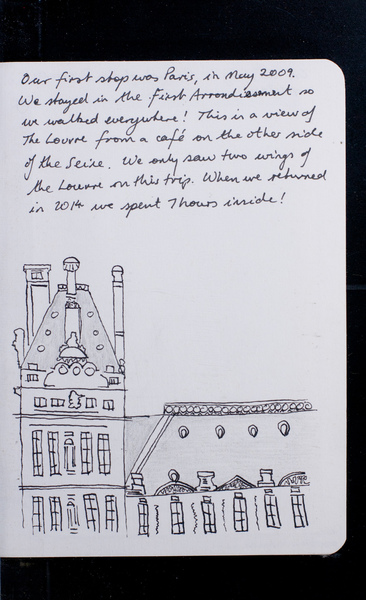 Our first stop was Paris, in May 2009.
We stayed in the First Arrondissement so
we walked everywhere! This is a view of
The Louvre from a café on the other side
of the Seine. We only saw two wings of
the Louvre on this trip. When we returned
in 2014 we spent 7 hours inside!